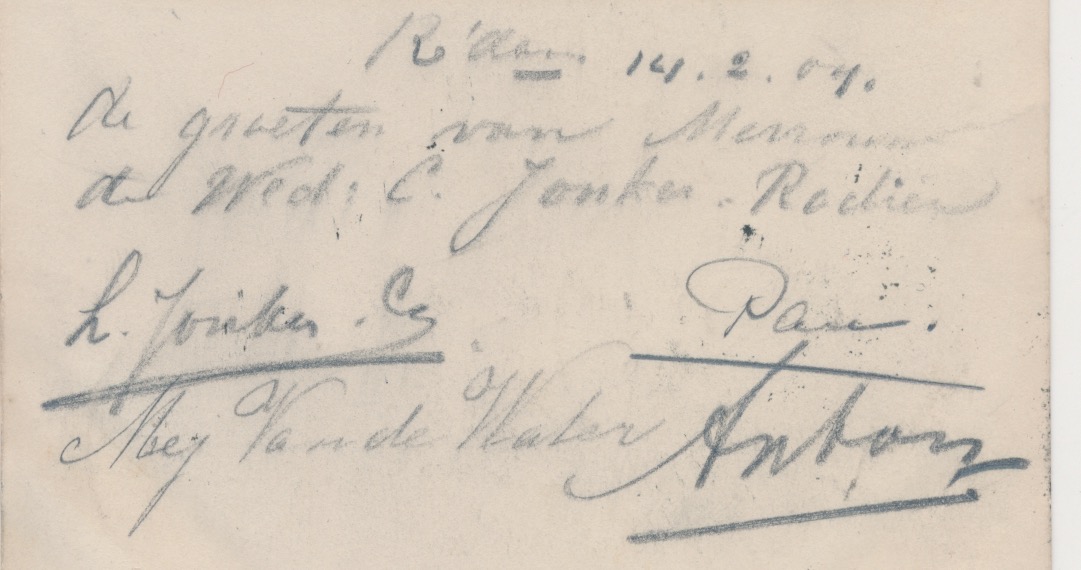 R'dam 14.2.04.
de groeten van Mevrouw
de Wed: C. Jonker. Rodier
L. Jonker. Cz Pau.
Mej Van de Water Anton